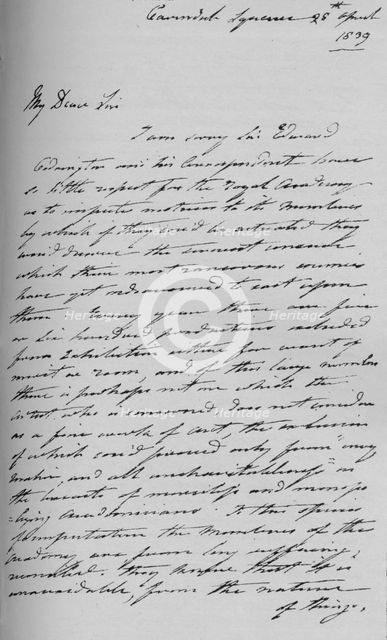 Cavendish Square 25th April
1839
My Dear Sir
I am sorry Sir Edward
Codrington and his Correspondent have
so little respect for the Royal Academy
as to impute motives to its Members
by which if they could be actuated they
would deserve the severest censure
which their most rancorous enemies
have yet endeavoured to cast upon
them. Every year there are five
or six hundred productions excluded
from Exhibition either for want of
merit or room, and of this large number
there is perhaps not one which the
artist who is concerned does not consider
as a fine work of art, the exclusion
of which could proceed only from "envy
malice, and all uncharitableness" in
the breasts of merciless and monopo
=lising Academicians. To this species
of imputation the Members of the
Academy are from long suffering,
reconciled. They know that it is
unavoidable, from the nature
of things,
Heritage
Heritage
Heritage
Heritage